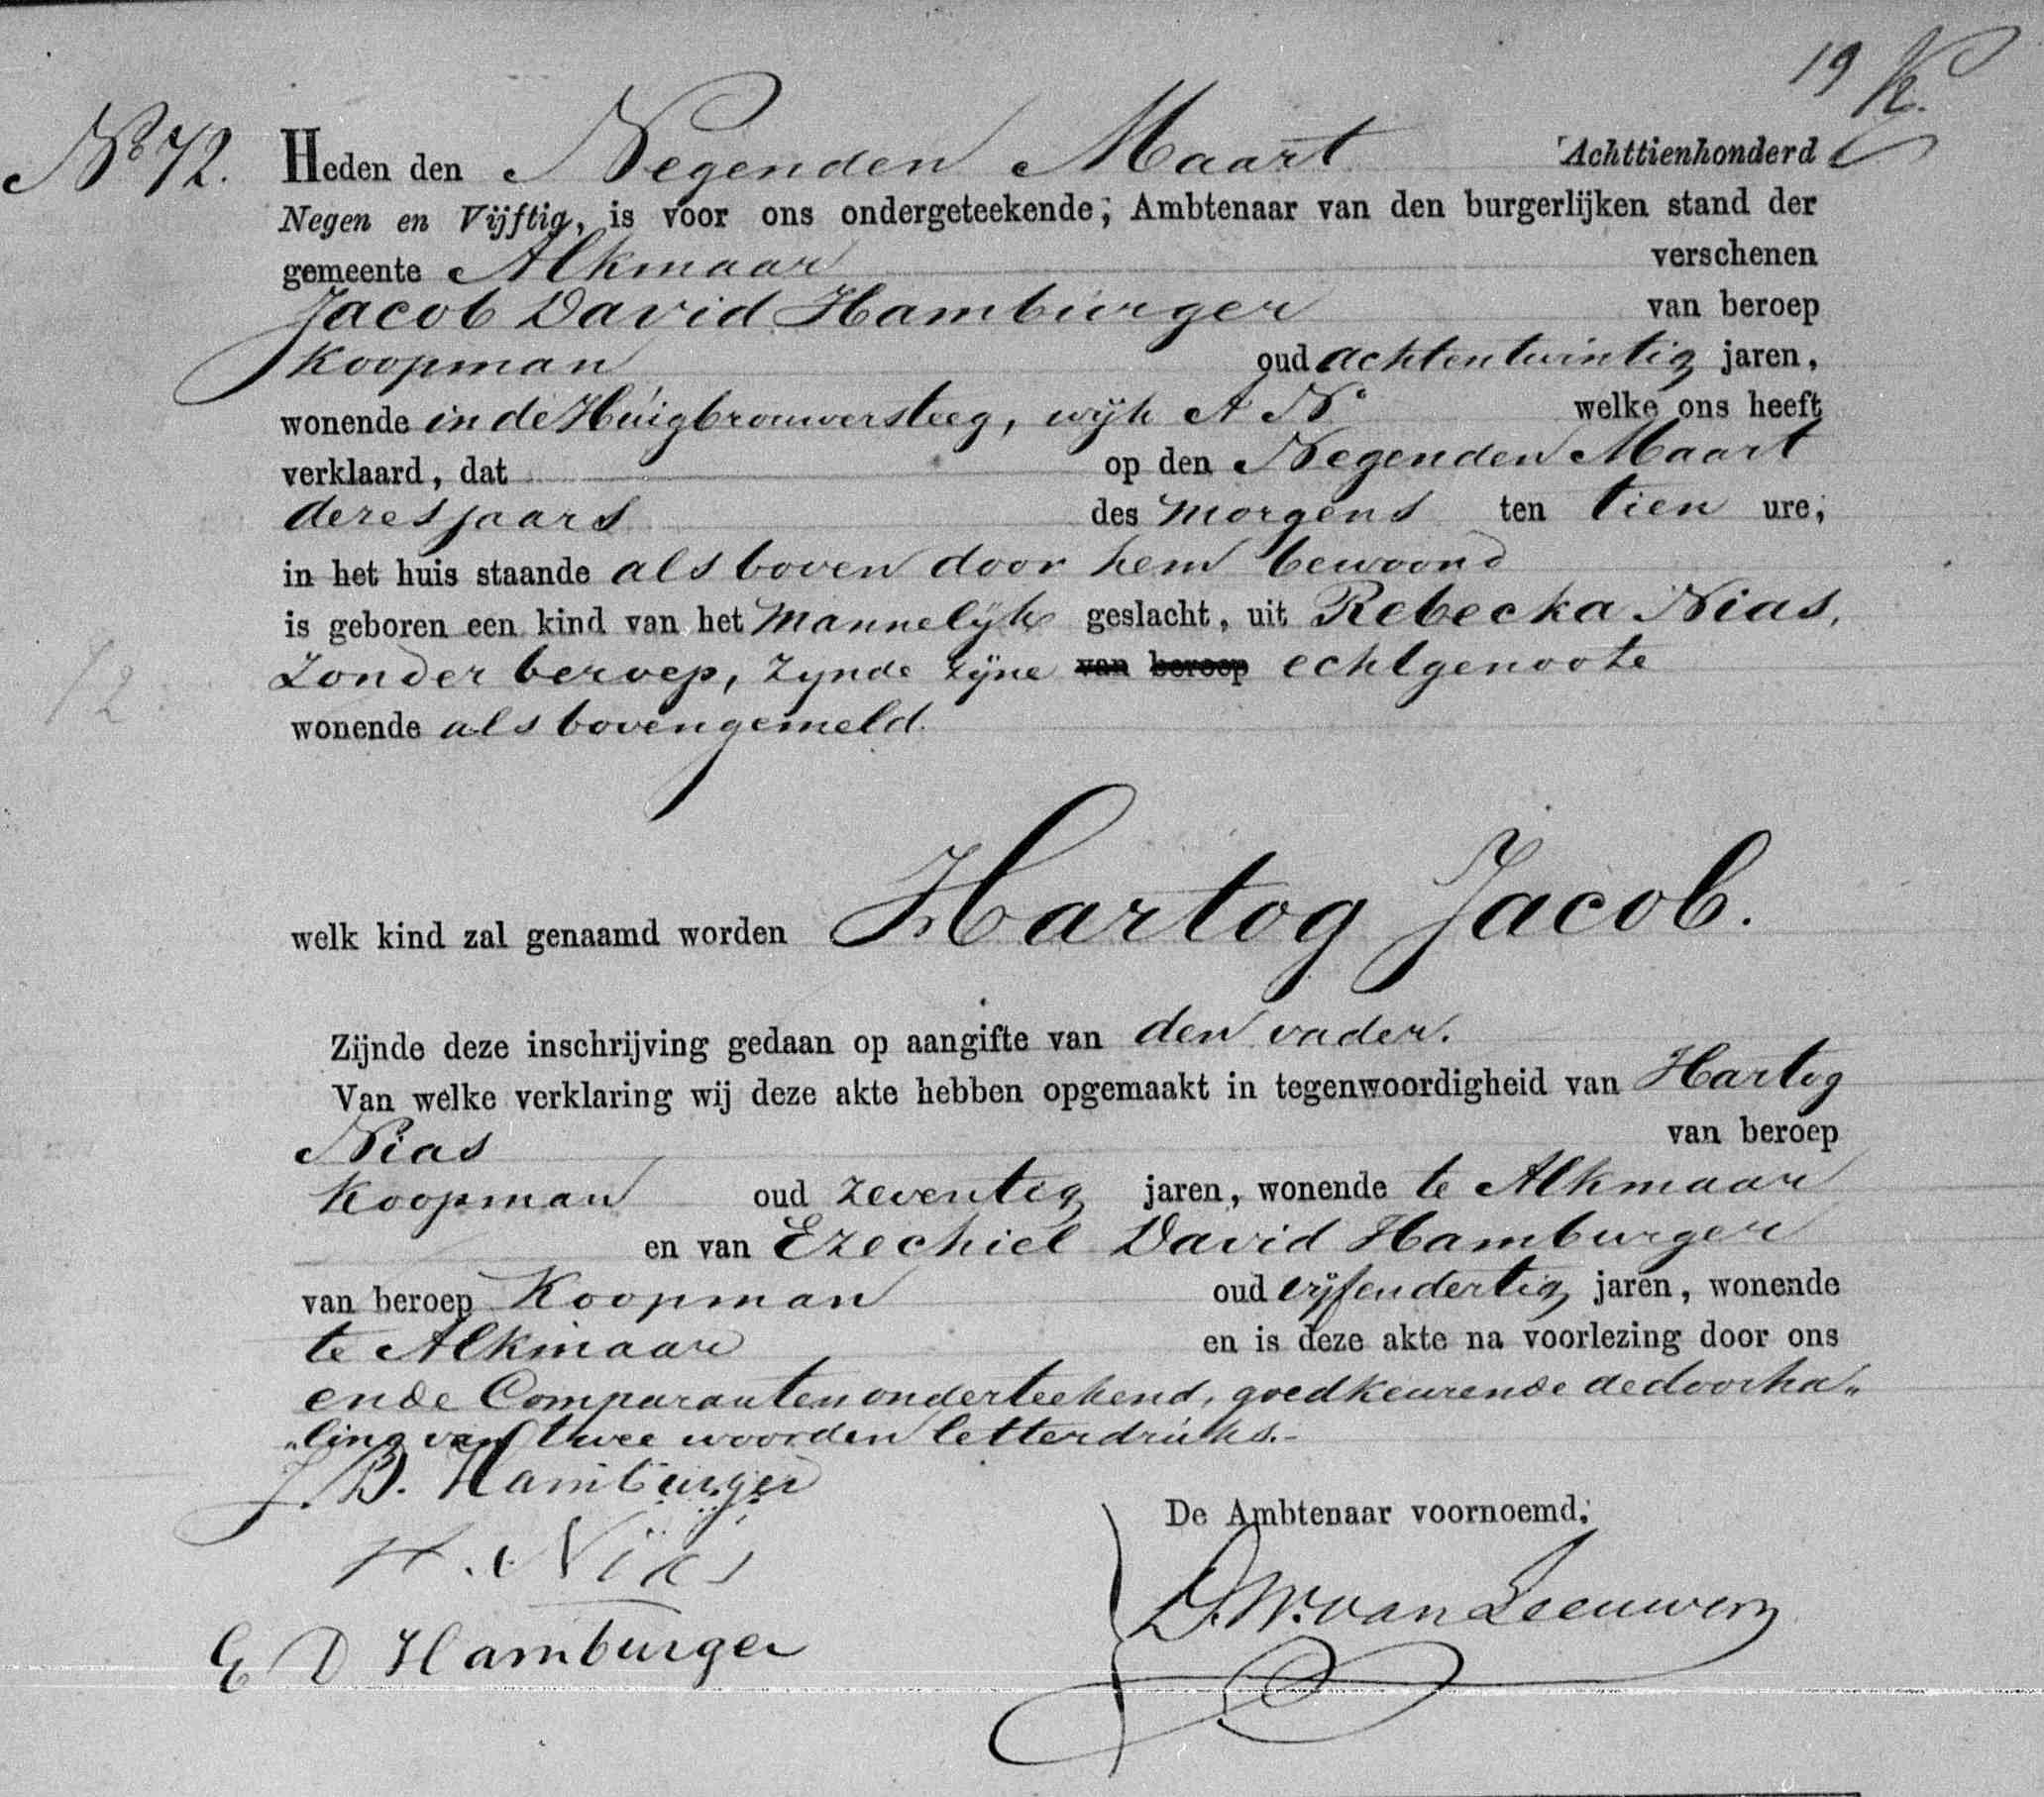 19 K.
No 72. Heden den Negenden Maart Achttienhonderd
Negen en Vijftig, is voor ons ondergeteekende, Ambtenaar van den burgerlijken stand der
gemeente Alkmaar verschenen
Jacob David Hamburger van beroep
Koopman oud achtentwintig jaren,
wonende in de Huigbrouwersteeg, wijk A No welke ons heeft
verklaard, dat op den Negenden Maart
dezes jaars des morgens ten tien ure,
in het huis staande als boven door hem bewoond
is geboren een kind van het Mannelijk geslacht, uit Rebecka Nias,
zonder beroep, zynde zijne van beroep echtgenoote
72
wonende als bovengemeld.
welk kind zal genaamd worden Hartog Jacob.
Zijnde deze inschrijving gedaan op aangifte van den vader.
Van welke verklaring wij deze akte hebben opgemaakt in tegenwoordigheid van Hartog
Nias van beroep
Koopman oud zeventig jaren, wonende te Alkmaar
en van Ezechiel David Hamburger
van beroep Koopman oud vijfendertig jaren, wonende
te Alkmaar en is deze akte na voorlezing door ons
en de Comparanten onderteekend, goedkeurende de doorha„
„ling van twee woorden letterdruks.-
J. D. Hamburger
De Ambtenaar voornoemd,
H. Nias
D. W. van Leeuwen
E D Hamburger